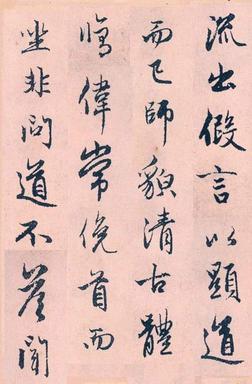 流出假言以顯道
而已師貌清古體
脩偉常俛首而
坐非問道不荅聞